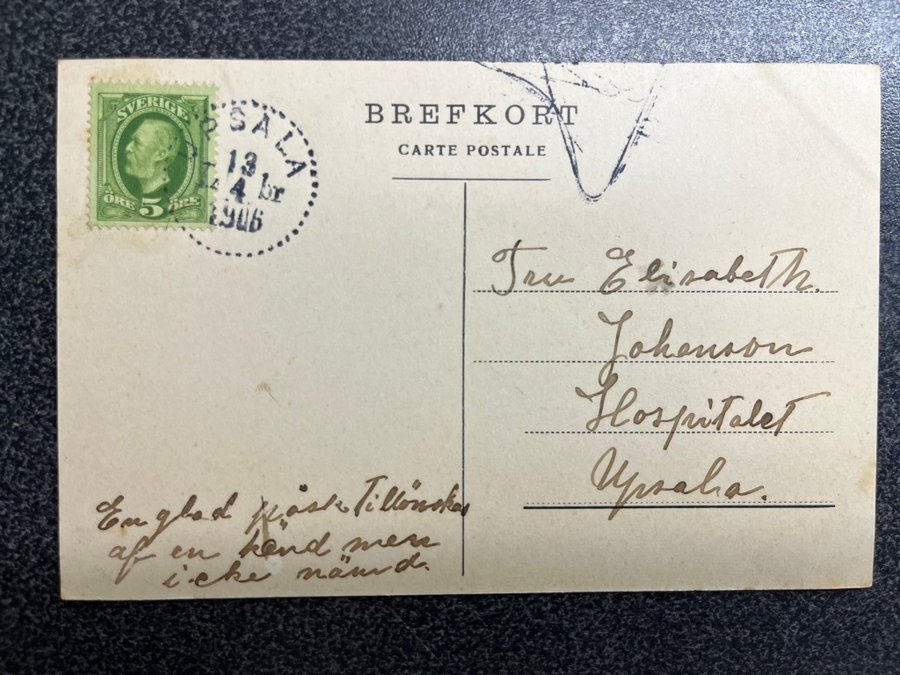 SVERIGE
ÖRE 5 ÖRE
UPSALA
13
4 br
1906
BREFKORT
CARTE POSTALE
Fru Elisabeth.
Johanson
Hospitalet
Upsala.
En glad påsk Tillönskas
af en känd men
icke nämd.